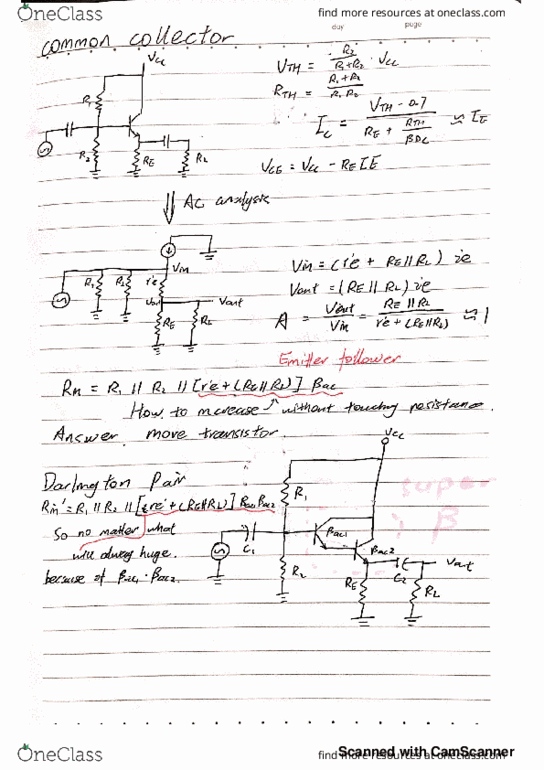 OneClass
find more resources at oneclass.com
day page
common collector
VTH = R2 / R1+R2 · Vcc
RTH = R1+R2 / R1 R2
Ic = VTH - 0.7 / RE + RTH / βDC ≈ IE
VCE = Vcc - RE IE
Vcc
R1
R2
RE
RL
⇓ AC analysis
Vin
R1
R2
r'e
Vout
RE
RL
Vin = (r'e + RE // RL) ie
Vout = (RE // RL) ie
A = Vout / Vin = RE // RL / r'e + (RE // RL) ≈ 1
Emitter follower
Rin = R1 // R2 // [r'e + (RE // RL)] βac
How to increase ↗ without touching resistance.
Answer. move transistor.
Darlington Pair
Rin' = R1 // R2 // [r'e + (RE // RL)] βac1 βac2
So no matter what
will always huge.
because of βac1 · βac2.
Vcc
R1
super
β
C1
βac1
βac2
R2
RE
C2
Vout
RL
OneClass
find more resources at oneclass.com
Scanned with CamScanner